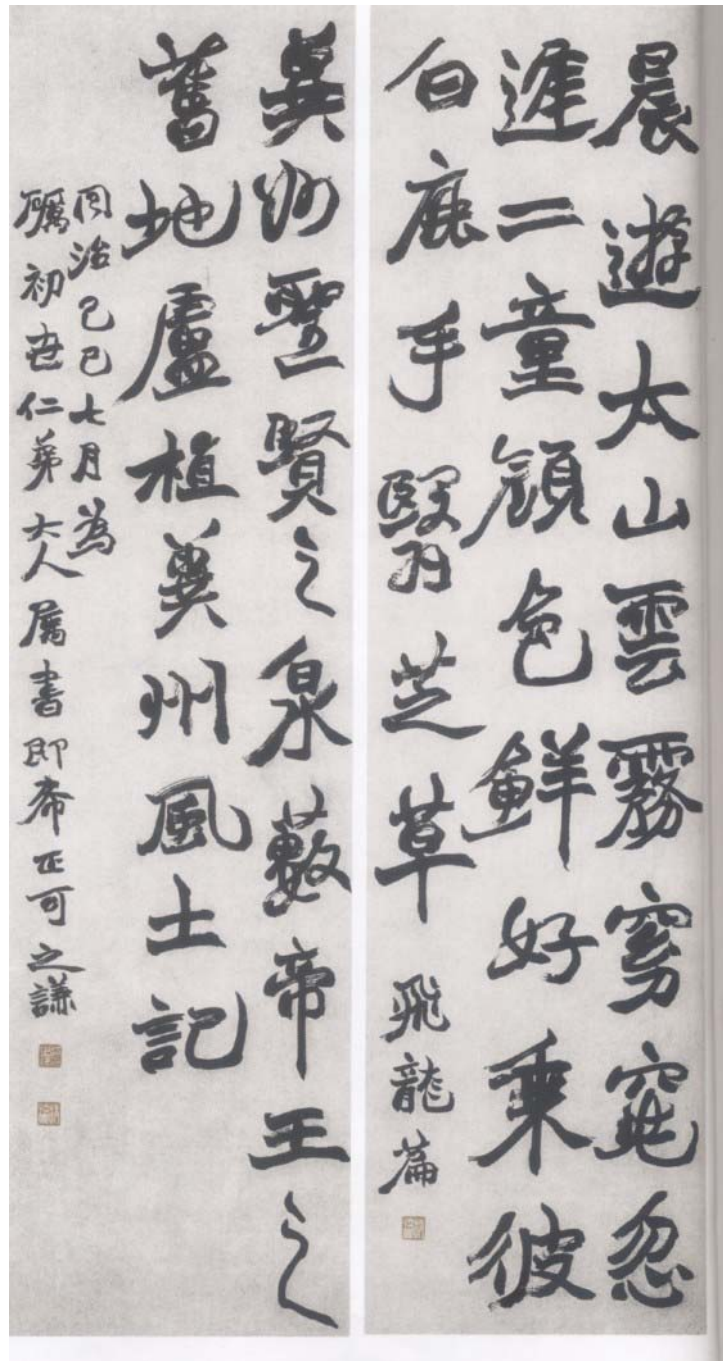 晨遊太山雲霧窈窕忽
逢二童顔色鮮好乘彼
白鹿手翳芝草 飛龍篇
冀州聖賢之泉藪帝王之
舊地盧植冀州風土記
同治己巳七月為
礪初世仁弟大人屬書即希正可之謙